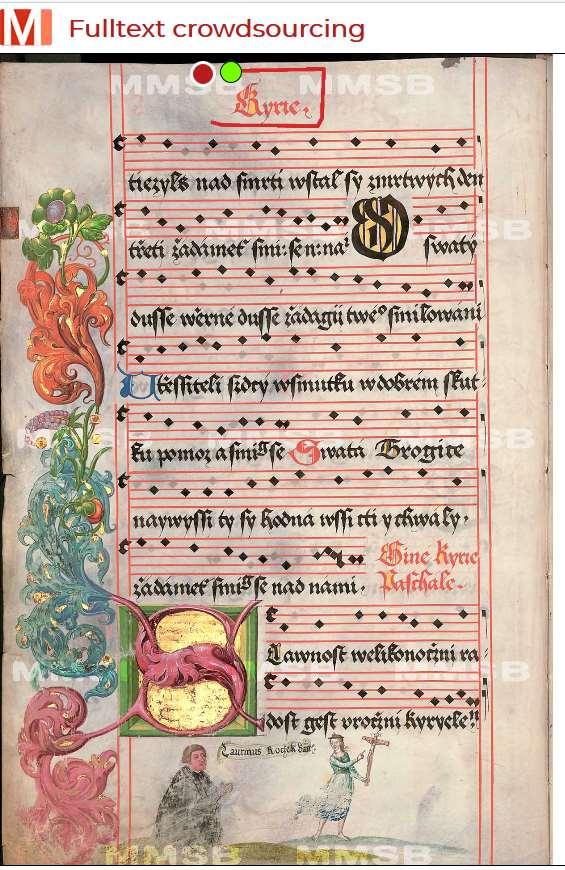 Fulltext crowdsourcing
MMSB MMSB
Kyrie.
tiezyls nad smrti wstal sy zmrtwych den
třeti žadamet smi: se n: na
O swaty
dusse wěrné dusse žadagij twe⁹ smilowáni
Utěssiteli sidcy wsmutku w dobrém skut-
ku pomoz a smi se Swata Trogice
naywyssi ty sy hodna wssi cti y chwaly.
žadamet smi se nad nami.
Gine Kyrie
Paschale.
Slawnost welikonočni ra-
dost gest wročni kyryele